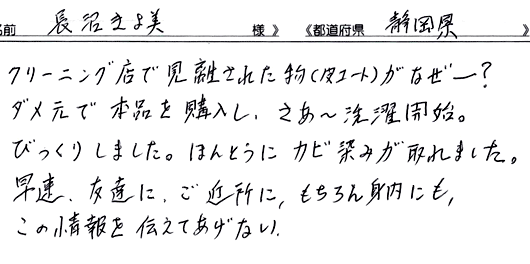 名前 長沼きよ美 様 》 《都道府県 静岡県 》
クリーニング店で見離された物(皮コート)がなぜー?
ダメ元で本品を購入し、さあ~洗濯開始。
びっくりしました。ほんとうにカビ染みが取れました。
早速、友達に、ご近所に、もちろん身内にも、
この情報を伝えてあげたい。